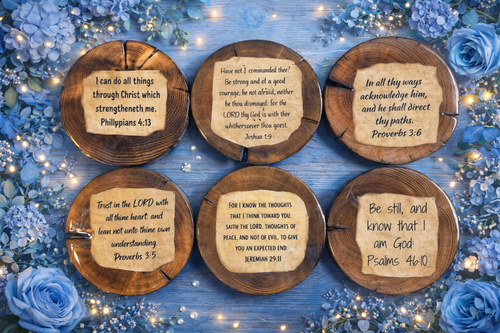 I can do all things
through Christ which
strengtheneth me.
Philippians 4:13
Have not I commanded thee?
Be strong and of a good
courage; be not afraid, neither
be thou dismayed: for the
LORD thy God is with thee
whithersoever thou goest.
Joshua 1:9
In all thy ways
acknowledge him,
and he shall direct
thy paths.
Proverbs 3:6
Trust in the LORD with
all thine heart; and
lean not unto thine own
understanding.
Proverbs 3:5
FOR I KNOW THE THOUGHTS
THAT I THINK TOWARD YOU,
SAITH THE LORD, THOUGHTS OF
PEACE, AND NOT OF EVIL, TO GIVE
YOU AN EXPECTED END.
JEREMIAH 29:11
Be still, and
know that I
am God:
Psalms 46:10